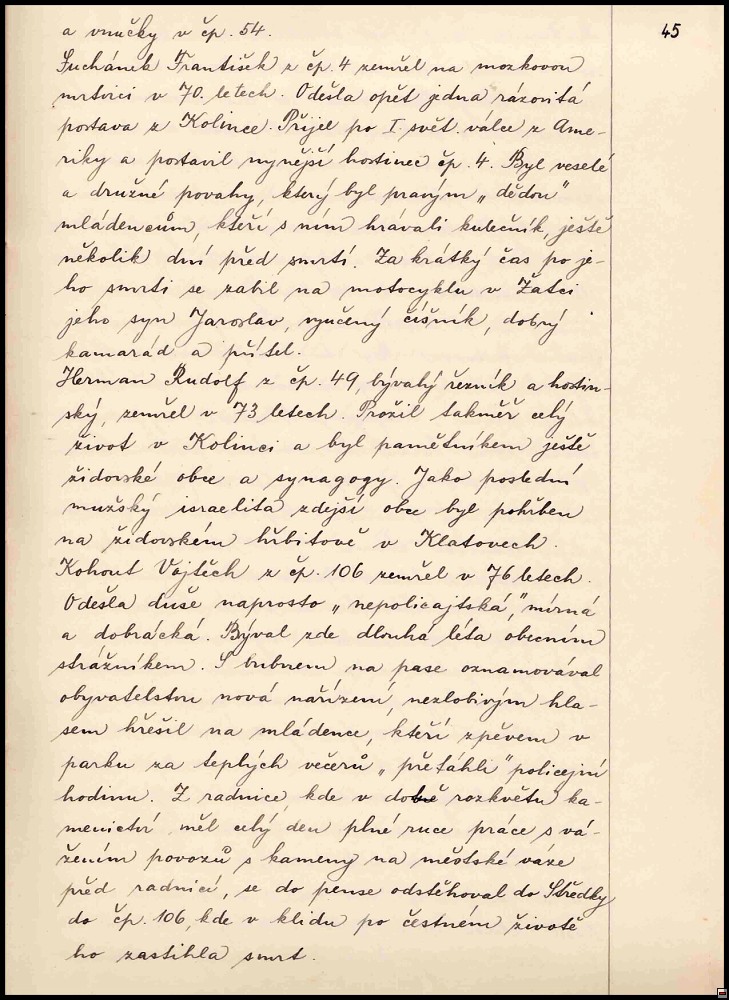 45
a vnučky v čp. 54.
Suchánek František z čp. 4 zemřel na mozkovou
mrtvici v 70. letech. Odešla opět jedna rázovitá
postava z Kolince. Přijel po I. svět. válce z Ame-
riky a postavil nynější hostinec čp. 4. Byl veselé
a družné povahy, který byl pravým „dědou"
mládencům, kteří s ním hrávali kulečník, ještě
několik dní před smrtí. Za krátký čas po je-
ho smrti se zabil na motocyklu v Žatci
jeho syn Jaroslav, vyučený číšník, dobrý
kamarád a přítel.
Herman Rudolf z čp. 49, bývalý řezník a hostin-
ský, zemřel v 73 letech. Prožil takměř celý
život v Kolinci a byl pamětníkem ještě
židovské obce a synagogy. Jako poslední
mužský israelita zdejší obce byl pohřben
na židovském hřbitově v Klatovech.
Kohout Vojtěch z čp. 106 zemřel v 76 letech.
Odešla duše naprosto „nepolicajtská", mírná
a dobrácká. Býval zde dlouhá léta obecním
strážníkem. S bubnem na pase oznamovával
obyvatelstvu nová nařízení, nezlobivým hla-
sem hřešil na mládence, kteří zpěvem v
parku za teplých večerů „přetáhli" policejní
hodinu. Z radnice, kde v době rozkvětu ka-
menictví měl celý den plné ruce práce s vá-
žením povozů s kameny na městské váze
před radnicí, se do pense odstěhoval do Středky
do čp. 106, kde v klidu po čestném životě
ho zastihla smrt.